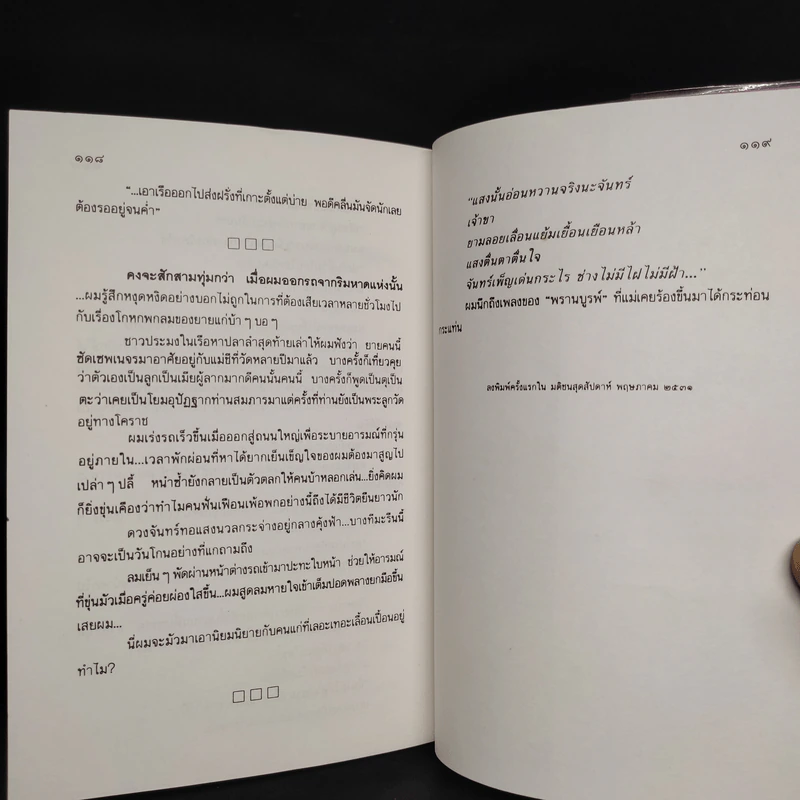 ๑๑๘
"...เอาเรือออกไปส่งฝรั่งที่เกาะตั้งแต่บ่าย พอดีคลื่นมันจัดนักเลย
ต้องรออยู่จนค่ำ"
□□□
คงจะสักสามทุ่มกว่า เมื่อผมออกรถจากริมหาดแห่งนั้น
...ผมรู้สึกหงุดหงิดอย่างบอกไม่ถูกในการที่ต้องเสียเวลาหลายชั่วโมงไป
กับเรื่องโกหกพกลมของยายแก่บ้า ๆ บอ ๆ
ชาวประมงในเรือหาปลาลำสุดท้ายเล่าให้ผมฟังว่า ยายคนนี้
ซัดเซพเนจรมาอาศัยอยู่กับแม่ชีที่วัดหลายปีมาแล้ว บางครั้งก็เที่ยวคุย
ว่าตัวเองเป็นลูกเป็นเมียผู้ลากมากดีคนนั้นคนนี้ บางครั้งก็พูดเป็นตุเป็น
ตะว่าเคยเป็นโยมอุปัฏฐากท่านสมภารมาแต่ครั้งที่ท่านยังเป็นพระลูกวัด
อยู่ทางโคราช
ผมเร่งรถเร็วขึ้นเมื่อออกสู่ถนนใหญ่เพื่อระบายอารมณ์ที่กรุ่น
อยู่ภายใน...เวลาพักผ่อนที่หาได้ยากเย็นเข็ญใจของผมต้องมาสูญไป
เปล่า ๆ ปลี้ หนำซ้ำยังกลายเป็นตัวตลกให้คนบ้าหลอกเล่น...ยิ่งคิดผม
ก็ยิ่งขุ่นเคืองว่าทำไมคนฟั่นเฟือนเพ้อพกอย่างนี้ถึงได้มีชีวิตยืนยาวนัก
ดวงจันทร์ทอแสงนวลกระจ่างอยู่กลางคุ้งฟ้า...บางทีมะรืนนี้
อาจจะเป็นวันโกนอย่างที่แกถามถึง
ลมเย็น ๆ พัดผ่านหน้าต่างรถเข้ามาปะทะใบหน้า ช่วยให้อารมณ์
ที่ขุ่นมัวเมื่อครู่ค่อยผ่องใสขึ้น...ผมสูดลมหายใจเข้าเต็มปอดพลางยกมือขึ้น
เสยผม...
นี่ผมจะมัวมาเอานิยมนิยายกับคนแก่ที่เลอะเทอะเลื้อนเปื้อนอยู่
ทำไม?
□□□
๑๑๙
"แสงนั้นอ่อนหวานจริงนะจันทร์
เจ้าขา
ยามลอยเลื่อนแย้มเยื้อนเยือนหล้า
แสงตื่นตาตื่นใจ
จันทร์เพ็ญเด่นกระไร ช่างไม่มีไฝไม่มีฝ้า..."
ผมนึกถึงเพลงของ "พรานบูรพ์" ที่แม่เคยร้องขึ้นมาได้กระท่อน
กระแท่น
ลงพิมพ์ครั้งแรกใน มติชนสุดสัปดาห์ พฤษภาคม ๒๕๓๑